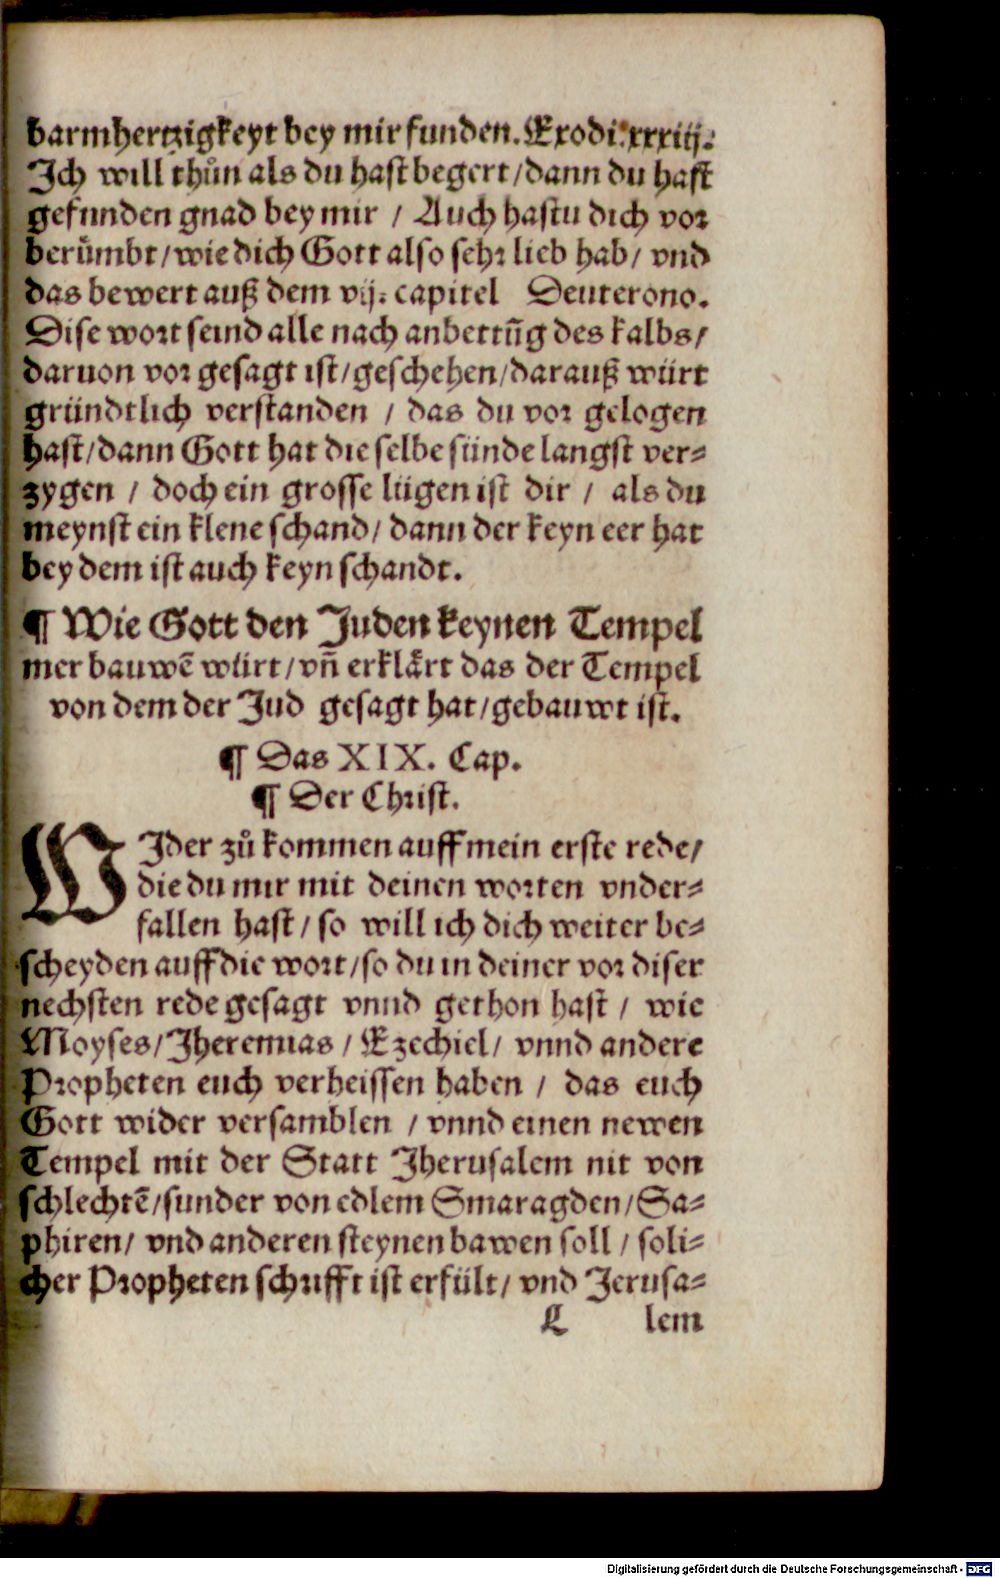 barmhertzigkeyt bey mir funden. Exodi. xxxiij.
Jch will thuͦn als du hast begert / dann du hast
gefunden gnad bey mir / Auch hastu dich vor
beruͤmbt / wie dich Gott also sehr lieb hab / vnd
das bewert auß dem vij. capitel Deuterono.
Dise wort seind alle nach anbettūg des kalbs /
daruon vor gesagt ist / geschehen / darauß würt
gründtlich verstanden / das du vor gelogen
hast / dann Gott hat die selbe sünde langst ver⸗
zygen / doch ein grosse lügen ist dir / als du
meynst ein klene schand / dann der keyn eer hat
bey dem ist auch keyn schandt.
¶ Wie Gott den Juden keynen Tempel
mer bauwē würt / vñ erklaͤrt das der Tempel
von dem der Jud gesagt hat / gebauwt ist.
¶ Das XIX. Cap.
¶ Der Christ.
WJder zuͦ kommen auff mein erste rede /
die du mir mit deinen worten vnder⸗
fallen hast / so will ich dich weiter be⸗
scheyden auff die wort / so du in deiner vor diser
nechsten rede gesagt vnnd gethon hast / wie
Moyses / Jheremias / Ezechiel / vnnd andere
Propheten euch verheissen haben / das euch
Gott wider versamblen / vnnd einen newen
Tempel mit der Statt Jherusalem nit von
schlechtē / sunder von edlem Smaragden / Sa⸗
phiren / vnd anderen steynen bawen soll / soli⸗
cher Propheten schrifft ist erfült / vnd Jerusa⸗
L lem
Digitalisierung gefördert durch die Deutsche Forschungsgemeinschaft - DFG